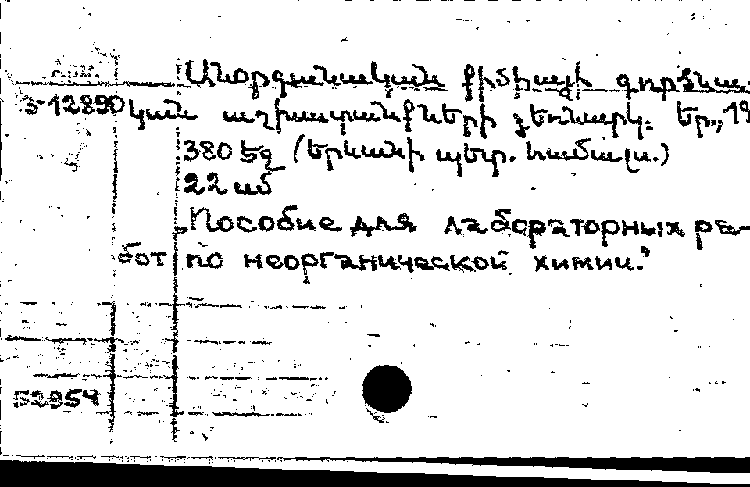 Անօրգանական քիմիայի գործնա-
3-12890 կան աշխատանքների ձեռնարկ. Եր., 19
380 էջ (Երևանի պետ. համալս.)
22 սմ
„Пособие для лабораторных ра-
бот по неорганической химии.”
52954